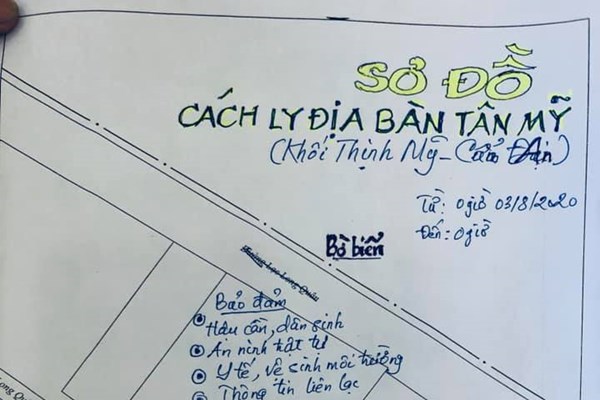 SƠ ĐỒ
CÁCH LY ĐỊA BÀN TÂN MỸ
(Khối Thịnh Mỹ - Cẩm An)
Từ: 0 giờ 03/8/2020
Đến: 0 giờ
Bờ biển
Đường Lạc Long Quân
Bảo đảm
Hậu cần, dân sinh
An ninh trật tự
Y tế, vệ sinh môi trường
Thông tin liên lạc
ong Qu